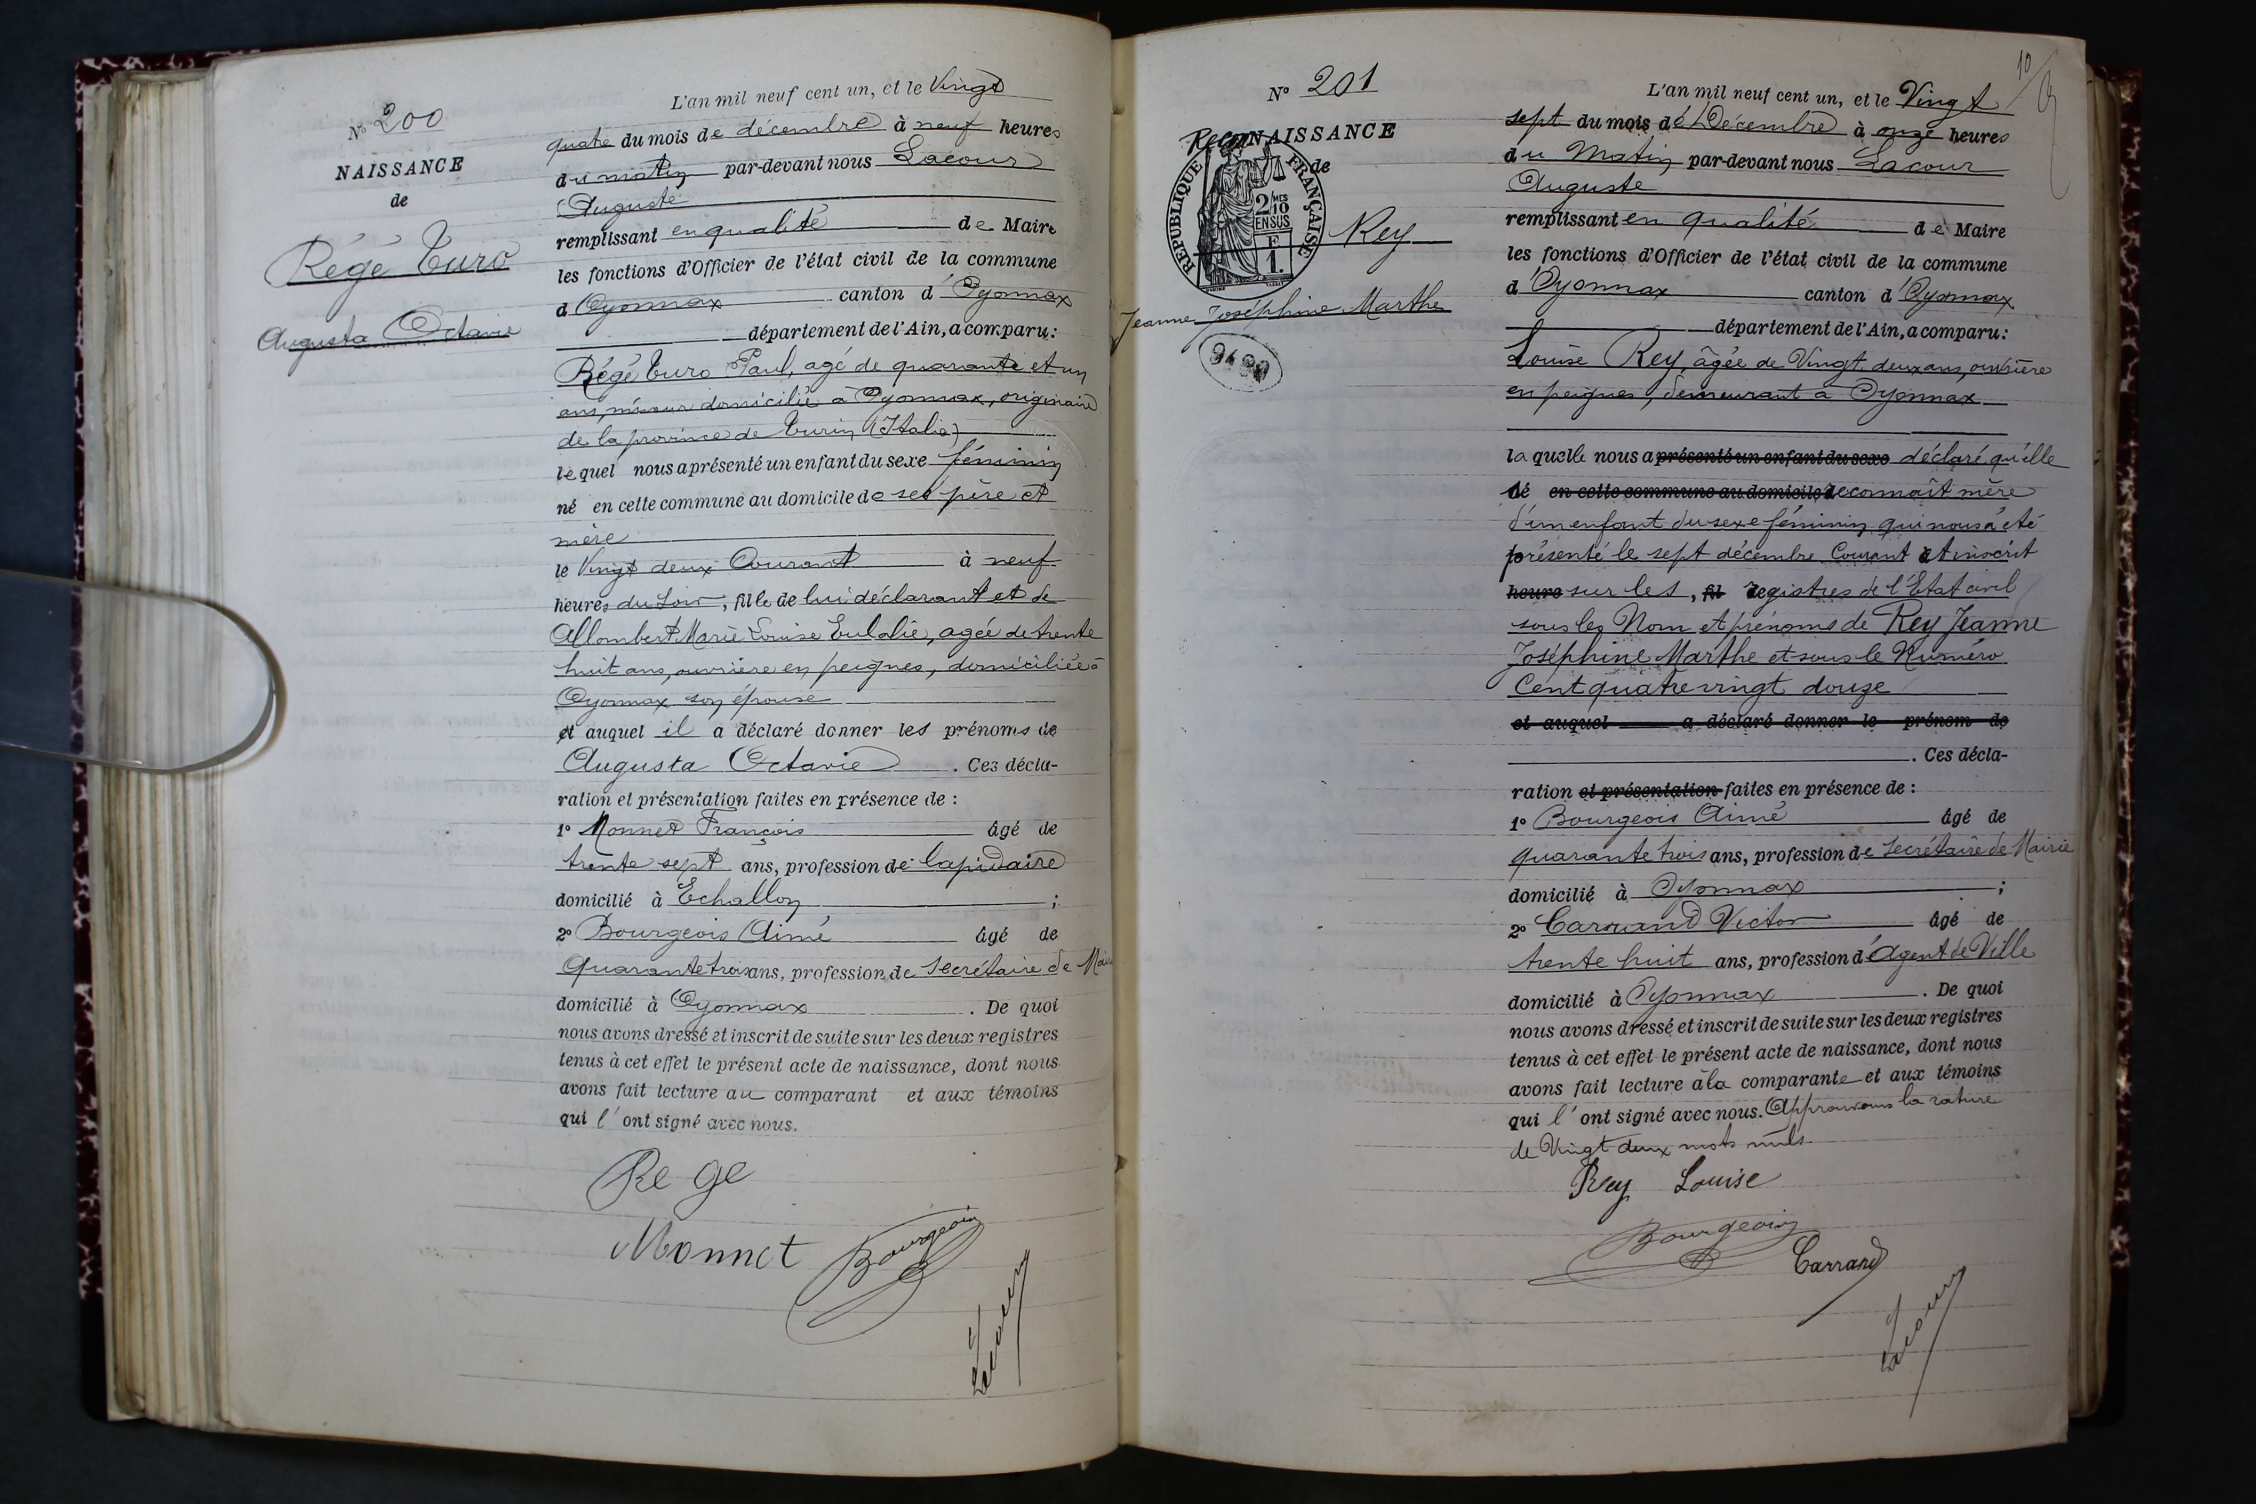 Nº 200
NAISSANCE
de
Régé Turo
Augusta Octavie
L'an mil neuf cent un, et le Vingt
quatre du mois de décembre à neuf heures
du matin par-devant nous Lacour
Auguste
remplissant en qualité de Maire
les fonctions d'Officier de l'état civil de la commune
d Oyonnax canton d' Oyonnax
département de l'Ain, a comparu:
Régé Turo Paul, agé de quarante et un
ans, mineur domicilié à Oyonnax, originaire
de la province de Turin (Italie)
lequel nous a présenté un enfant du sexe féminin
né en cette commune au domicile de ses père et
mère
le Vingt deux Courant à neuf
heures du Soir, fille de lui déclarant et de
Allombert Marie Louise Eulalie, agée de trente
huit ans, ouvrière en peignes, domiciliée à
Oyonnax son épouse
et auquel il a déclaré donner les prénoms de
Augusta Octavie. Ces décla-
ration et présentation faites en présence de :
1º Monnet François âgé de
trente sept ans, profession de lapidaire
domicilié à Echallon ;
2º Bourgeois Aimé âgé de
Quarante trois ans, profession de Secrétaire de Mairie
domicilié à Oyonnax. De quoi
nous avons dressé et inscrit de suite sur les deux registres
tenus à cet effet le présent acte de naissance, dont nous
avons fait lecture au comparant et aux témoins
qui l' ont signé avec nous.
Rege
Monnet Bourgeois
Lacour
10
Nº 201
Recon NAISSANCE
de
REPUBLIQUE FRANÇAISE
2 MES
10
EN SUS
F
1.
Rey
Jeanne Joséphine Marthe
L'an mil neuf cent un, et le Vingt
sept du mois de Décembre à onze heures
du Matin par-devant nous Lacour
Auguste
remplissant en qualité de Maire
les fonctions d'Officier de l'état civil de la commune
d'Oyonnax canton d'Oyonnax
département de l'Ain, a comparu:
Louise Rey, âgée de Vingt deux ans, ouvrière
en peignes, demeurant à Oyonnax
la quelle nous a présenté un enfant du sexe déclaré qu'elle
né en cette commune au domicile de reconnaît mère
d'un enfant du sexe féminin qui nous a été
présenté le sept décembre Courant et inscrit
heure sur les, fil registres de l'Etat civil
sous les Nom et prénoms de Rey Jeanne
Joséphine Marthe et sous le Numéro
Cent quatre vingt douze
et auquel a déclaré donner le prénom de
. Ces décla-
ration et présentation faites en présence de :
1º Bourgeois Aimé âgé de
quarante trois ans, profession de Secrétaire de Mairie
domicilié à Oyonnax ;
2º Carrand Victor âgé de
trente huit ans, profession d'Agent de Ville
domicilié à Oyonnax. De quoi
nous avons dressé et inscrit de suite sur les deux registres
tenus à cet effet le présent acte de naissance, dont nous
avons fait lecture à la comparante et aux témoins
qui l' ont signé avec nous. Approuvons la rature
de Vingt deux mots nuls.
Rey Louise
Bourgeois
Carrand
Lacour